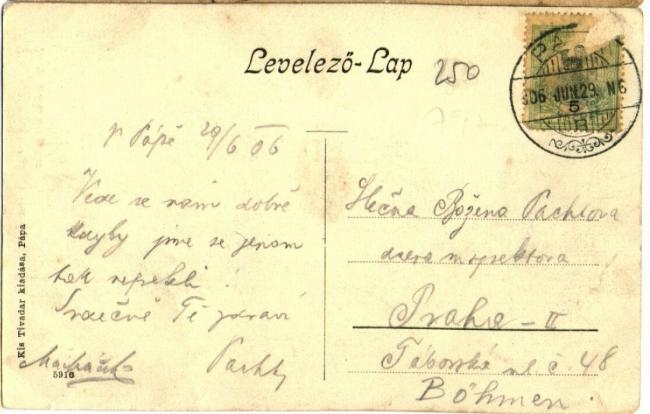 Levelező-Lap
250
PÁ
906 JUN. 29. N6
5
V Pápě 29/6 06
Vede se nám dobře
kdyby jsme se jenom
tak nepekli!
Srdečně Tě zdraví
Pachty
Slečna Božena Pachtova
dcera inspektora
Praha-II
Táborská ul. č. 48
Böhmen.
Kis Tivadar kiadása, Pápa
5916